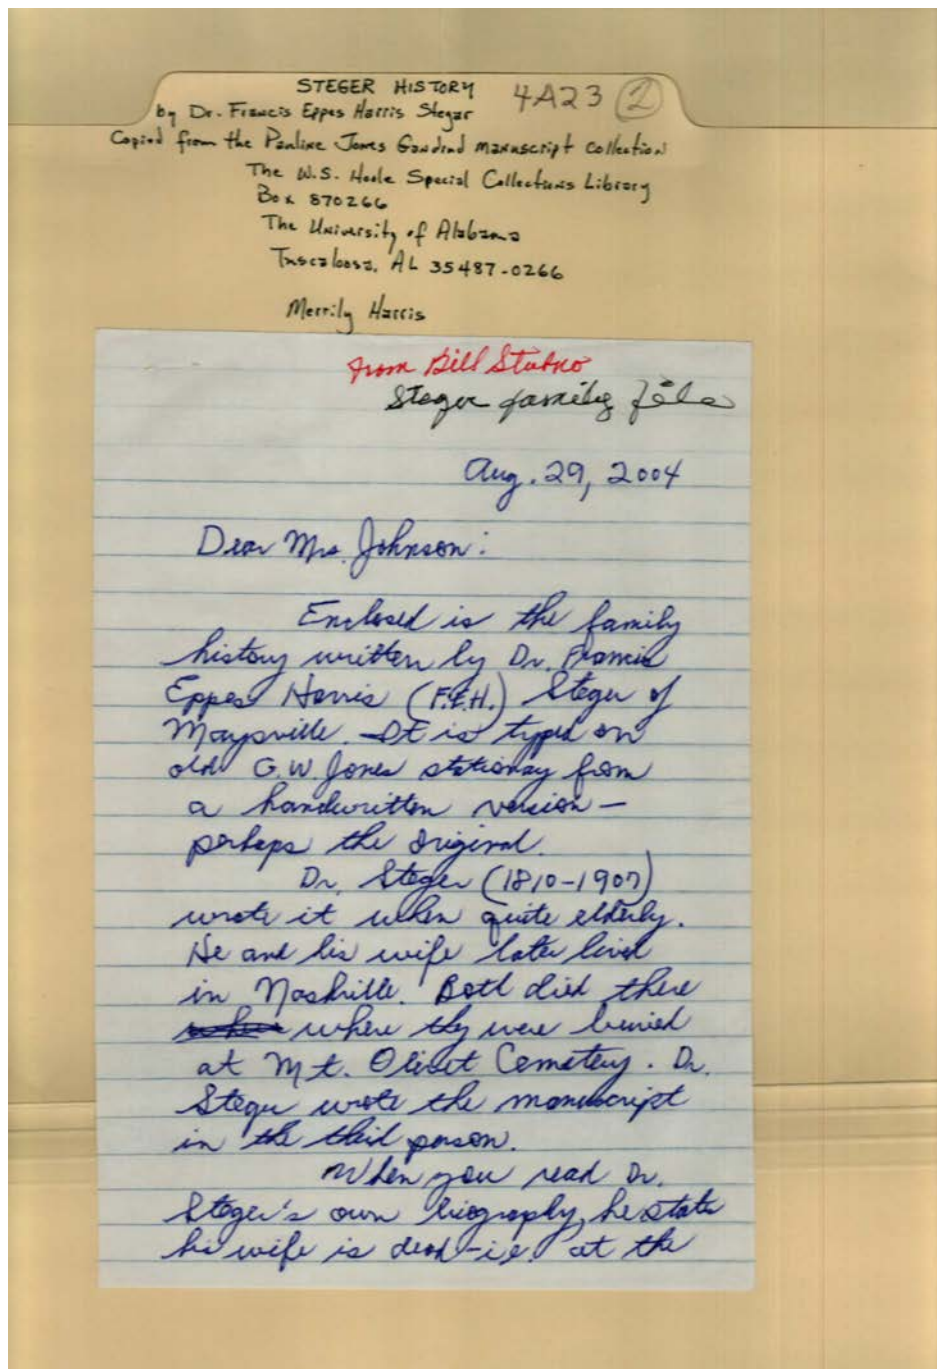 STEGER HISTORY
4A23 2
by Dr. Francis Eppes Harris Stegar
Copied from the Pauline Jones Gandrud manuscript collection
The W.S. Hoole Special Collections Library
Box 870266
The University of Alabama
Tuscaloosa, AL 35487-0266
Merrily Harris
from Bill Stubno
Steger family file
Aug. 29, 2004
Dear Mrs. Johnson:
Enclosed is the family
history written by Dr. Francis
Eppes Harris (F.E.H.) Steger of
Maysville. It is typed on
old G.W. Jones stationay from
a handwritten version -
perhaps the original.
Dr. Steger (1810-1907)
wrote it when quite elderly.
He and his wife later lived
in Nashville. Both died there
where they were buried
at Mt. Olivet Cemetery. Dr.
Steger wrote the manuscript
in the third person.
When you read Dr.
Steger's own biography, he states
his wife is dead - i.e. at the